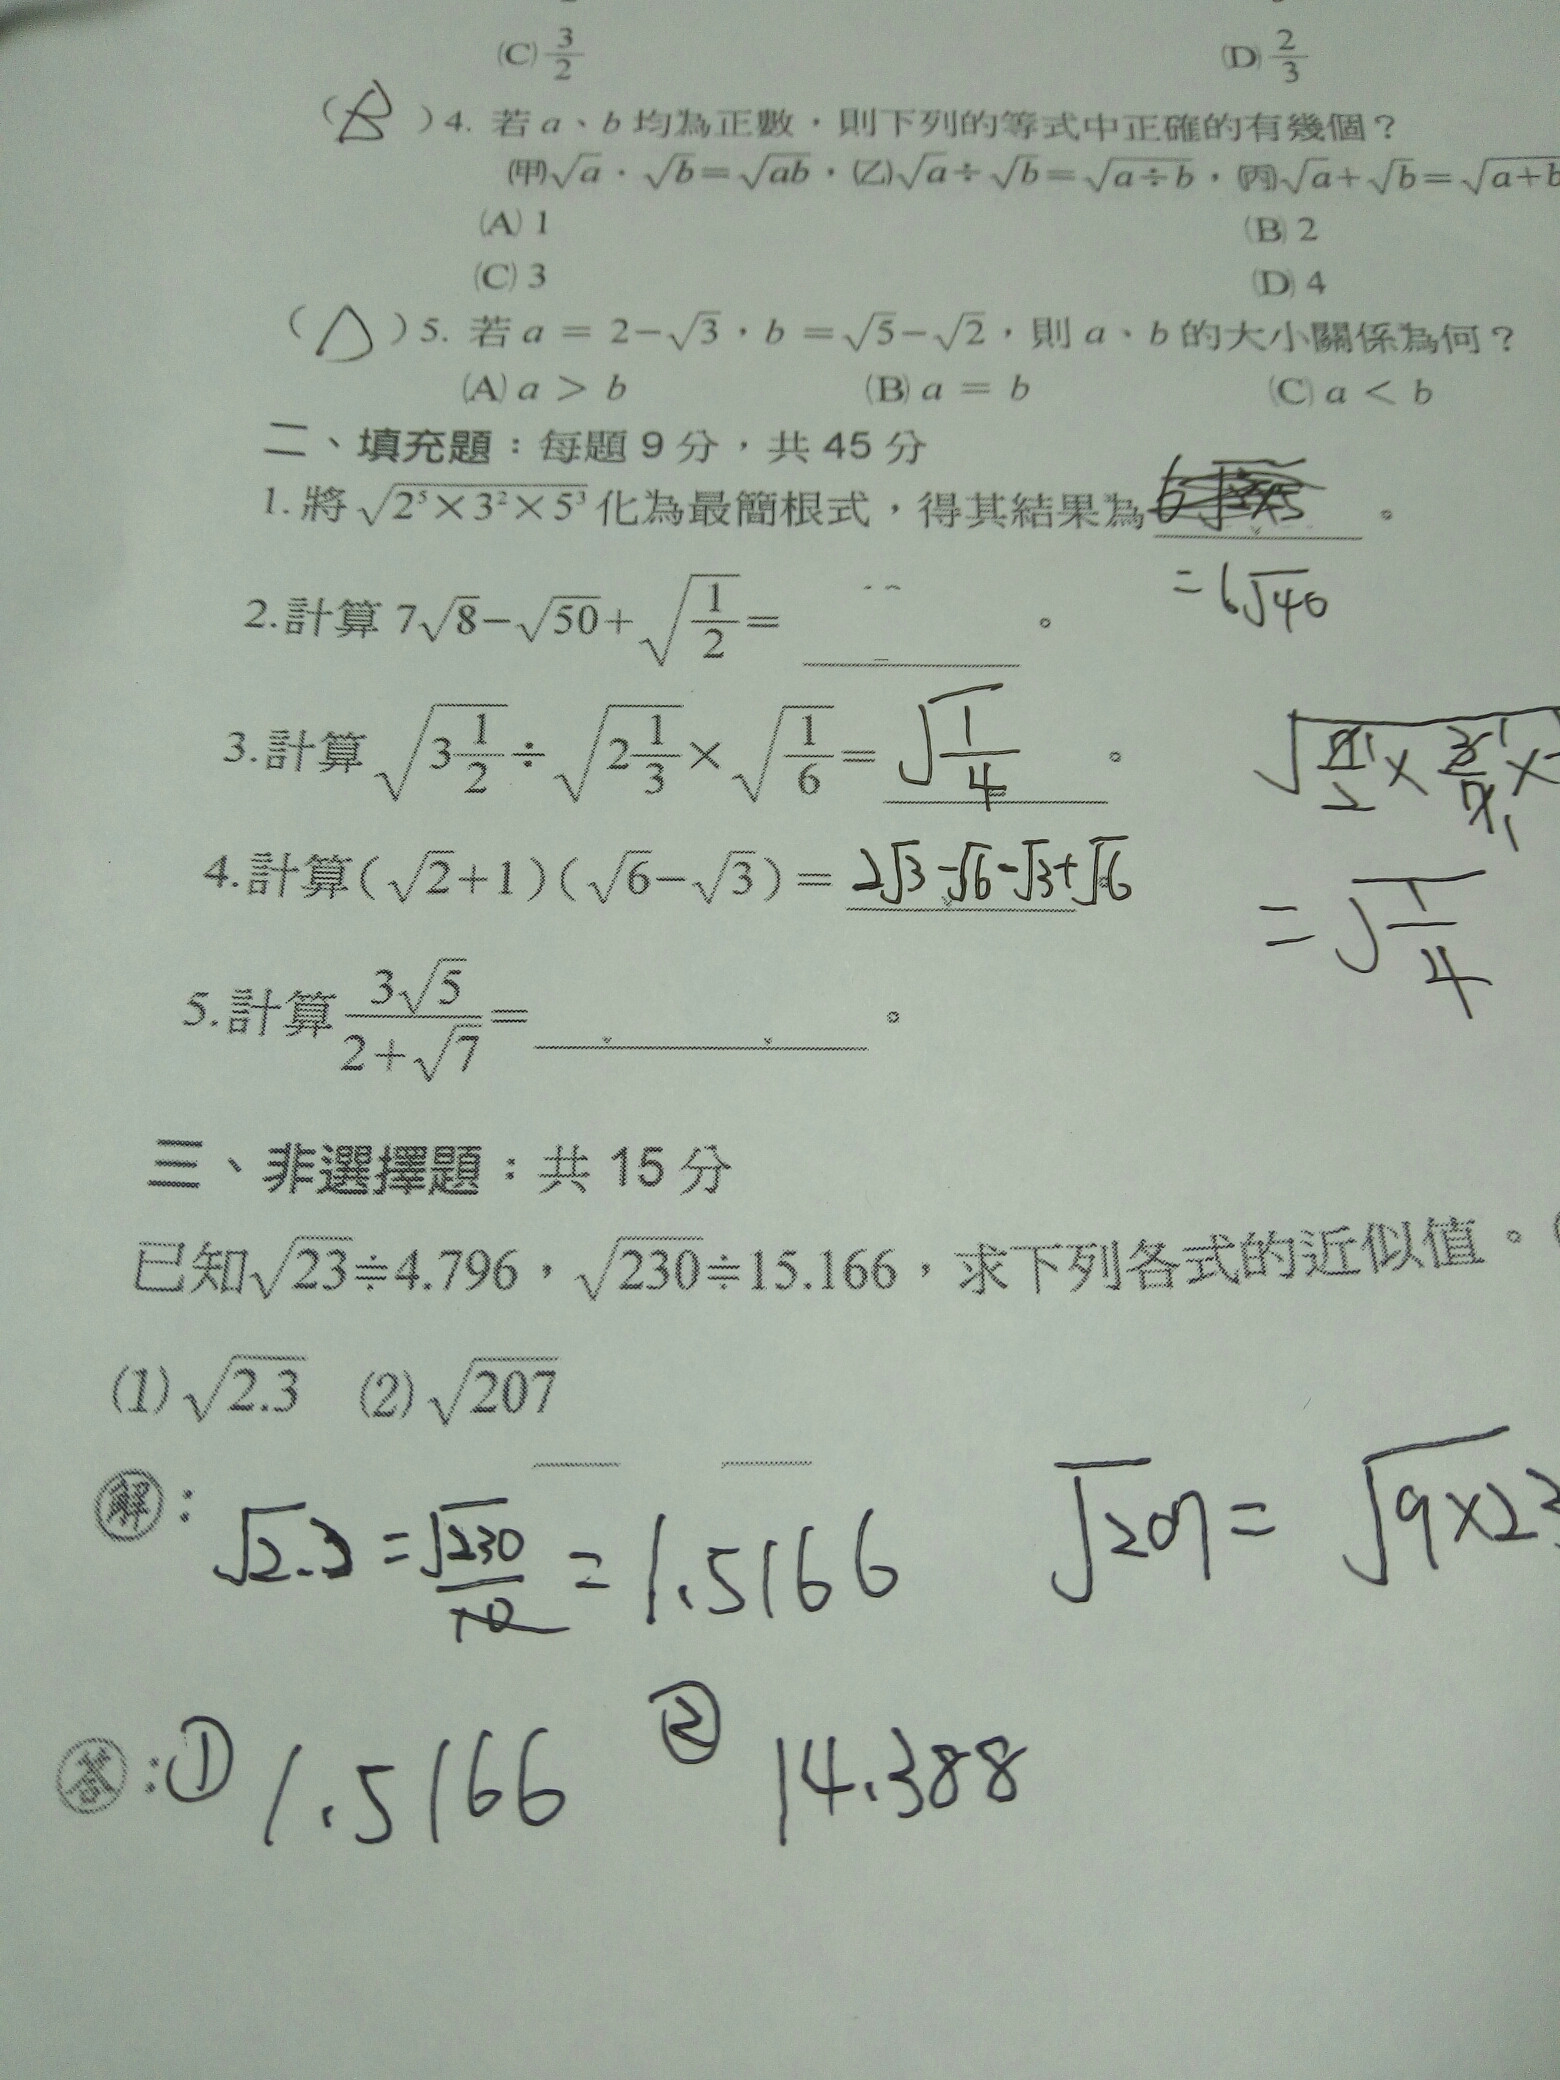 (C) 3/2 (D) 2/3
( B ) 4. 若 a、b 均為正數，則下列的等式中正確的有幾個？
(甲)√a · √b = √ab，(乙)√a ÷ √b = √a÷b，(丙)√a + √b = √a+b
(A) 1 (B) 2
(C) 3 (D) 4
( ) 5. 若 a = 2−√3，b = √5−√2，則 a、b 的大小關係為何？
(A) a > b (B) a = b (C) a < b
二、填充題：每題 9 分，共 45 分
1. 將 √(2⁵×3²×5³) 化為最簡根式，得其結果為 。
= 6√40
2. 計算 7√8−√50+√(1/2)= 。
3. 計算 √(3 1/2)÷√(2 1/3)×√(1/6)= √(1/4) 。
4. 計算(√2+1)(√6−√3)= 2√3−√6−√3+√6
= √(1/4)
5. 計算 3√5/(2+√7)= 。
三、非選擇題：共 15 分
已知√23≒4.796，√230≒15.166，求下列各式的近似值。
(1) √2.3 (2) √207
解： √2.3 = √230/10 = 1.5166 √207 = √9×23
答：① 1.5166 ② 14.388